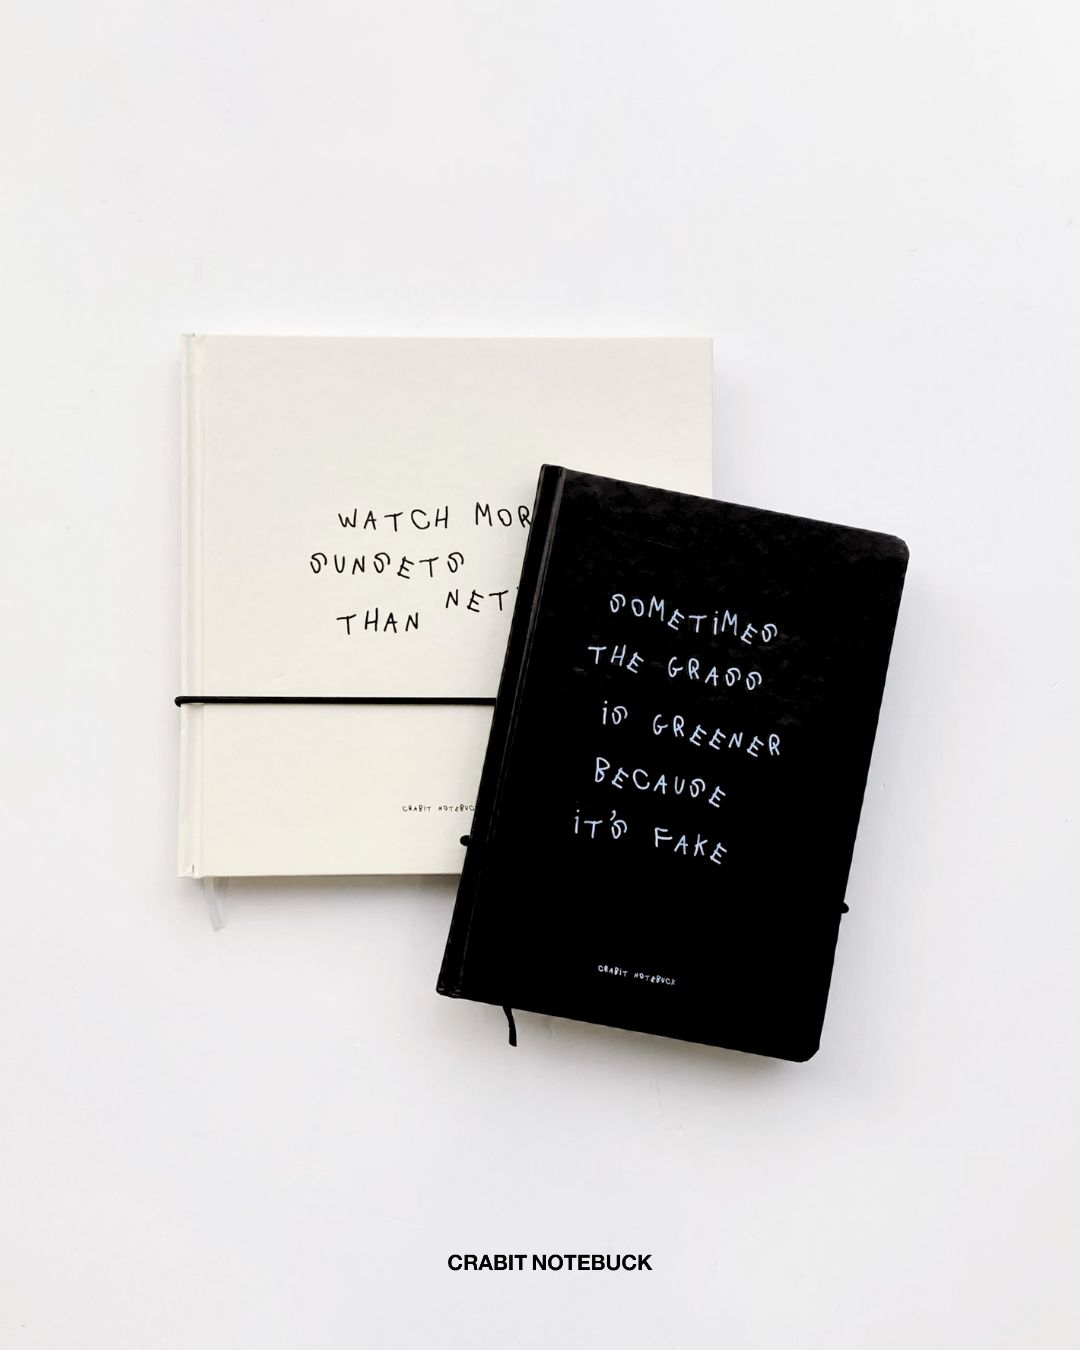 WATCH MOR
SUNSETS
THAN NET
CRABIT NOTEBUC
SOMETIMES
THE GRASS
iS GREENER
BECAUSE
iT'S FAKE
CRABIT NOTEBUCK
CRABIT NOTEBUCK